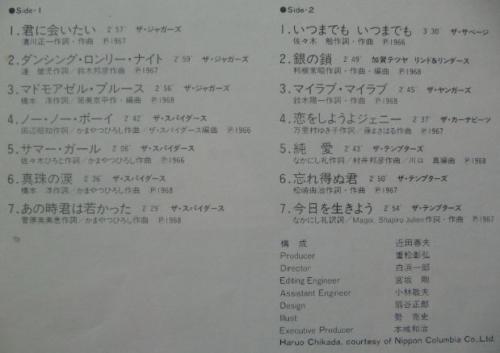 ●Side-1
1.君に会いたい 2'57" ザ・ジャガーズ
清川正一作詞・作曲 Ⓟ1967
2.ダンシング・ロンリー・ナイト 2'59" ザ・ジャガーズ
漣 健児作詞/鈴木邦彦作曲 Ⓟ1967
3.マドモアゼル・ブルース 2'56" ザ・ジャガーズ
橋本 淳作詞/筒美京平作・編曲 Ⓟ1968
4.ノー・ノー・ボーイ 2'42" ザ・スパイダース
田辺昭知作詞/かまやつひろし作曲/ザ・スパイダース編曲 Ⓟ1966
5.サマー・ガール 2'06" ザ・スパイダース
佐々木ひろと作詞/かまやつひろし作曲 Ⓟ1966
6.真珠の涙 2'36" ザ・スパイダース
橋本 淳作詞/かまやつひろし作曲 Ⓟ1968
7.あの時君は若かった 2'29" ザ・スパイダース
菅原芙美恵作詞/かまやつひろし作曲 Ⓟ1968
●Side-2
1.いつまでも いつまでも 3'30" ザ・サベージ
佐々木 勉作詞・作曲 Ⓟ1966
2.銀の鎖 2'49" 加賀テツヤ リンド&リンダース
利根常昭作詞・作曲・編曲 Ⓟ1968
3.マイラブ・マイラブ 2'45" ザ・ヤンガーズ
鈴木陽一作詞・作曲 Ⓟ1968
4.恋をしようよジェニー 2'37" ザ・カーナビーツ
万里村ゆき子作詞/藤まさはる作曲 Ⓟ1967
5.純 愛 2'43" ザ・テンプターズ
なかにし礼作詞/村井邦彦作曲/川口 真編曲 Ⓟ1968
6.忘れ得ぬ君 2'50" ザ・テンプターズ
松崎由治作詞・作曲 Ⓟ1967
7.今日を生きよう 2'54" ザ・テンプターズ
なかにし礼訳詞/Mogol, Shapiro Julien作詞・作曲 Ⓟ1967
構 成 近田春夫
Producer 重松彰弘
Director 白浜一郎
Editing Engineer 宮坂 剛
Assistant Engineer 小林敬夫
Design 翁谷正郎
Illust 勢 克史
Executive Producer 本城和治
Haruo Chikada, courtesy of Nippon Columbia Co., Ltd.